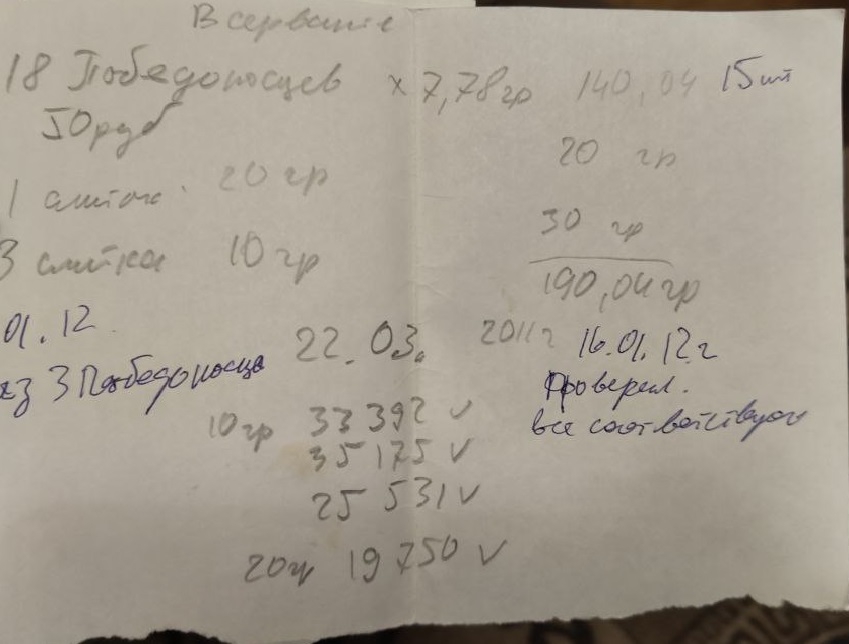 В серванте
18 Победоносцев x 7,78 гр 140,04 15 шт
50 руб
20 гр
1 слиток 20 гр
30 гр
3 слитка 10 гр
190,04 гр
01.12
22.03. 2011 г 16.01.12 г
3 Победоносца
Проверил.
10 гр 33 392 v
все соответствует
35 175 v
25 531 v
20 гр 19 750 v